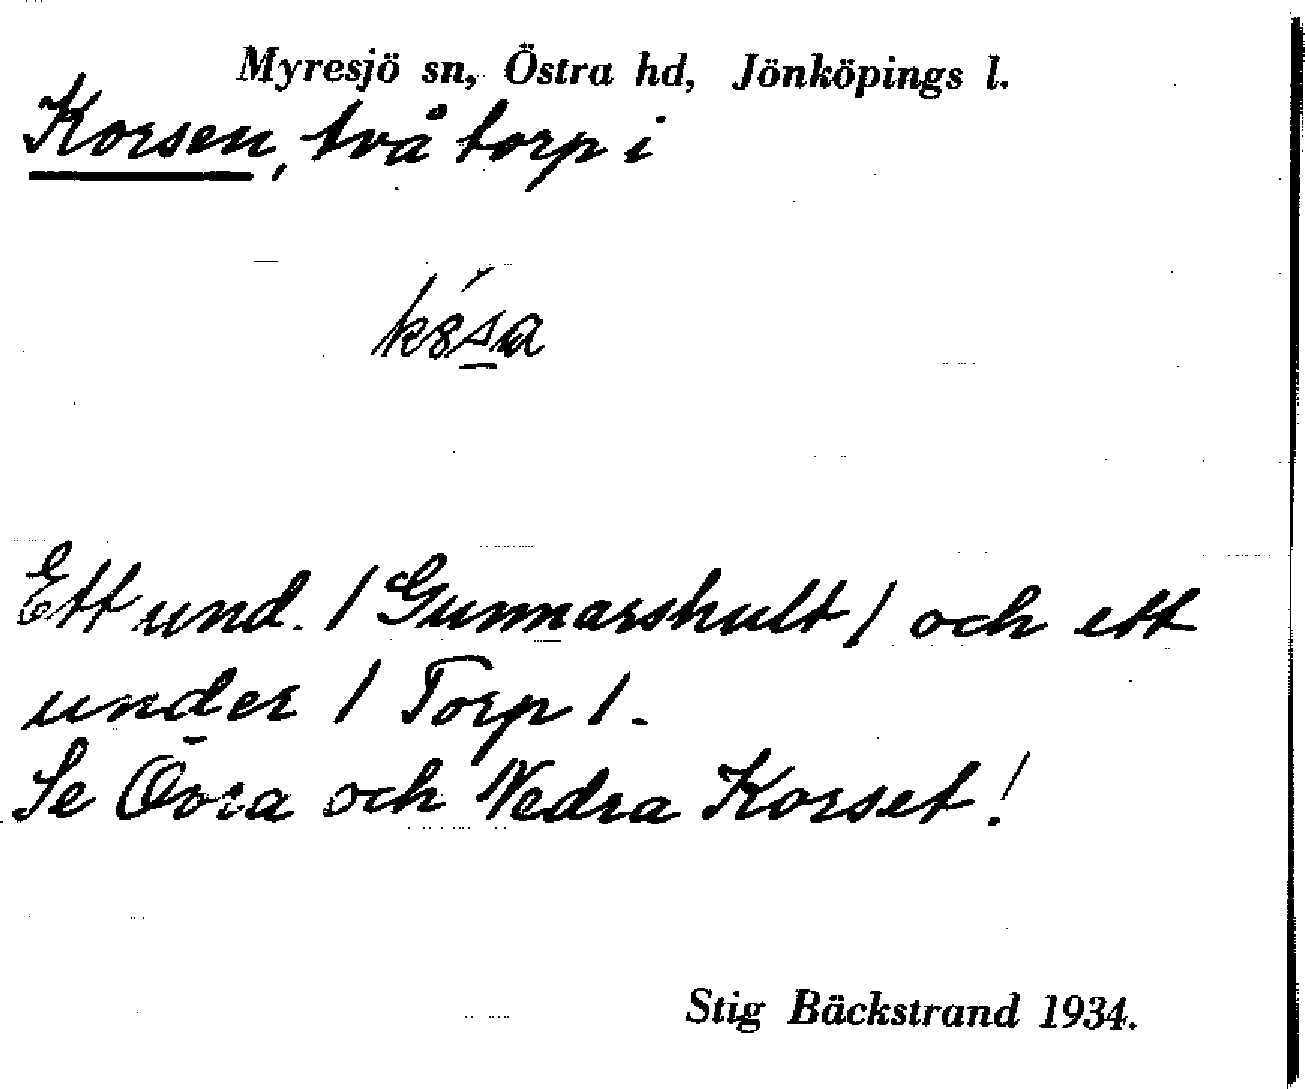 Myresjö sn, Östra hd, Jönköpings l.
Korsen, två torp i
Ett und. / Gunnarshult / och ett
under / Torp /.
Se Övra och Nedra Korset!
Stig Bäckstrand 1934.